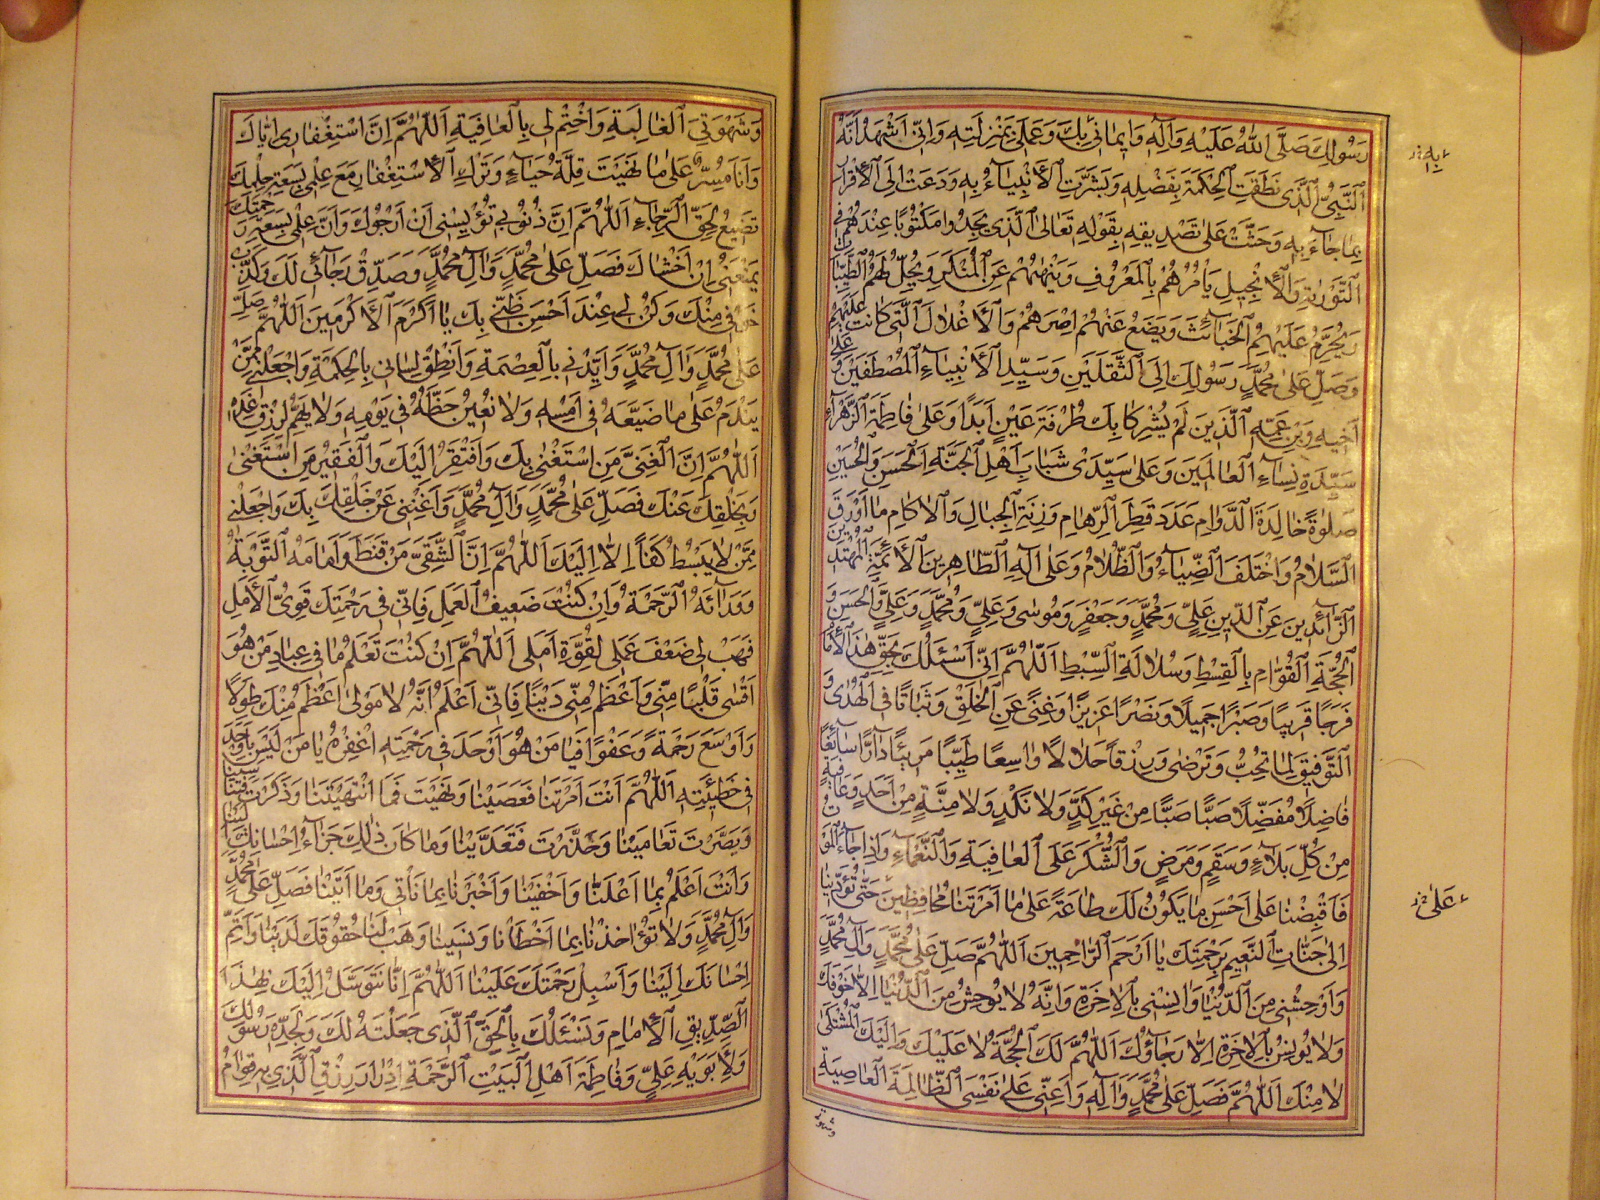 رَسُولِكَ صَلَّى اللهُ عَلَيْهِ وَآلِهِ وَايِمَانِي بِكَ وَعَلِيٍّ بِمَنْزِلَتِهِ وَاِنِّي اَشْهَدُ اَنَّهُ
النَّبِيُّ الَّذِي نَطَقَتِ الْحِكْمَةُ بِفَضْلِهِ وَبَشَّرَتِ الْاَنْبِيَاءُ بِهِ وَدَعَتْ اِلَى الْاِقْرَارِ
بِمَا جَاءَ بِهِ وَحَثَّتْ عَلَى تَصْدِيقِهِ بِقَوْلِهِ تَعَالَى الَّذِي يَجِدُوا مَكْتُوبًا عِنْدَهُمْ فِي
التَّوْرَاةِ وَالْاِنْجِيلِ يَاْمُرُهُمْ بِالْمَعْرُوفِ وَيَنْهَاهُمْ عَنِ الْمُنْكَرِ وَيُحِلُّ لَهُمُ الطَّيِّبَاتِ
وَيُحَرِّمُ عَلَيْهِمُ الْخَبَائِثَ وَيَضَعُ عَنْهُمْ اِصْرَهُمْ وَالْاَغْلَالَ الَّتِي كَانَتْ عَلَيْهِمْ
وَصَلِّ عَلَى مُحَمَّدٍ رَسُولِكَ اِلَى الثَّقَلَيْنِ وَسَيِّدِ الْاَنْبِيَاءِ الْمُصْطَفَيْنَ وَ عَلَى
اَخِيهِ وَبْنِ عَمِّهِ الَّذَيْنِ لَمْ يُشْرِكَا بِكَ طُرْفَةَ عَيْنٍ اَبَدًا وَعَلَى فَاطِمَةَ الزَّهْرَاءِ
سَيِّدَةِ نِسَاءِ الْعَالَمِينَ وَعَلَى سَيِّدَيْ شَبَابِ اَهْلِ الْجَنَّةِ الْحَسَنِ وَالْحُسَيْنِ
صَلَوةً خَالِدَةَ الدَّوَامِ عَدَدَ قَطْرِ الرِّهَامِ وَزِنَةِ الْجِبَالِ وَالْاَكَامِ مَا اَوْرَقَ
السَّلَامُ وَاخْتَلَفَ الضِّيَاءُ وَالظَّلَامُ وَعَلَى آلِهِ الطَّاهِرِينَ الْاَئِمَّةِ الْمُهْتَدِينَ
الذَّائِدِينَ عَنِ الدِّينِ عَلِيٍّ وَمُحَمَّدٍ وَجَعْفَرٍ وَمُوسَى وَعَلِيٍّ وَمُحَمَّدٍ وَعَلِيٍّ وَالْحَسَنِ وَ
الْحُجَّةِ الْقَوَّامِ بِالْقِسْطِ وَسُلَالَةِ السِّبْطِ اَللّهُمَّ اِنِّي اَسْئَلُكَ بِحَقِّ هَذَا الْاِمَامِ
فَرَجًا قَرِيبًا وَصَبْرًا جَمِيلًا وَنَصْرًا عَزِيزًا وَغِنًى عَنِ الْخَلْقِ وَثَبَاتًا فِي الْهُدَى وَ
التَّوْفِيقِ لِمَا تُحِبُّ وَتَرْضَى وَرِزْقًا حَلَالًا وَاسِعًا طَيِّبًا مَرِيئًا دَارًّا سَائِغًا
فَاضِلًا مُفَضِّلًا صَبًّا صَبًّا مِنْ غَيْرِ كَدٍّ وَلَا نَكَدٍ وَلَا مِنَّةٍ مِنْ اَحَدٍ وَعَافِيَةً
مِنْ كُلِّ بَلَاءٍ وَسَقَمٍ وَمَرَضٍ وَالشُّكْرَ عَلَى الْعَافِيَةِ وَالنَّعْمَاءِ وَاِذَا جَاءَ الْمَوْتُ
فَاقْبِضْنَا عَلَى اَحْسَنِ مَا يَكُونُ لَكَ طَاعَةً عَلَى مَا اَمَرْتَنَا مُحَافِظِينَ حَتَّى تُؤَدِّيَنَا
اِلَى جَنَّاتِ النَّعِيمِ بِرَحْمَتِكَ يَا اَرْحَمَ الرَّاحِمِينَ اَللّهُمَّ صَلِّ عَلَى مُحَمَّدٍ وَآلِ مُحَمَّدٍ
وَاَوْحِشْنِي مِنَ الدُّنْيَا وَانِسْنِي بِالْاخِرَةِ وَاِنَّهُ لَا يُوحِشُ مِنَ الدُّنْيَا اِلَّا خَوْفُكَ
وَلَا يُونِسُ بِالْاخِرَةِ اِلَّا رَجَاؤُكَ اَللّهُمَّ لَكَ الْحُجَّةُ لَا عَلَيْكَ وَاِلَيْكَ الْمُشْتَكَى
لَا مِنْكَ اَللّهُمَّ فَصَلِّ عَلَى مُحَمَّدٍ وَآلِهِ وَاَعِنِّي عَلَى نَفْسِيَ الظَّالِمَةِ الْعَاصِيَةِ
بِهِ
عَلَى
وشهوتی
وَشَهْوَتِيَ الْغَالِبَةِ وَاخْتِمْ لِي بِالْعَافِيَةِ اَللّهُمَّ اِنَّ اسْتِغْفَارِي اِيَّاكَ
وَاَنَا مُصِرٌّ عَلَى مَا نَهَيْتَ قِلَّةُ حَيَاءٍ وَتَرْكِ الْاِسْتِغْفَارِ مَعَ عِلْمِي بِسَعَةِ حِلْمِكَ
تَضْيِيعٌ لِحَقِّ الرَّجَاءِ اَللّهُمَّ اِنَّ ذُنُوبِي تُؤْيِسُنِي اَنْ اَرْجُوَكَ وَاَنَّ عِلْمِي بِسَعَةِ رَحْمَتِكَ
يَمْنَعُنِي اِنْ اَخْشَاكَ فَصَلِّ عَلَى مُحَمَّدٍ وَآلِ مُحَمَّدٍ وَصَدِّقْ رَجَائِي لَكَ وَكَذِّبْ
خَوْفِي مِنْكَ وَكُنْ لِي عِنْدَ اَحْسَنِ ظَنِّي بِكَ يَا اَكْرَمَ الْاَكْرَمِينَ اَللّهُمَّ صَلِّ
عَلَى مُحَمَّدٍ وَآلِ مُحَمَّدٍ وَاَيِّدْنِي بِالْعِصْمَةِ وَاَنْطِقْ لِسَانِي بِالْحِكْمَةِ وَاجْعَلْنِي مِمَّنْ
يَنْدَمُ عَلَى مَا ضَيَّعَهُ فِي اَمْسِهِ وَلَا يُغْبَنُ حَظَّهُ فِي يَوْمِهِ وَلَا يَهُمُّ لِرِزْقِ غَدِهِ
اَللّهُمَّ اِنَّ الْغَنِيَّ مَنِ اسْتَغْنَى بِكَ وَافْتَقَرَ اِلَيْكَ وَالْفَقِيرَ مَنِ اسْتَغْنَى
بِخَلْقِكَ عَنْكَ فَصَلِّ عَلَى مُحَمَّدٍ وَآلِ مُحَمَّدٍ وَاَغْنِنِي عَنْ خَلْقِكَ بِكَ وَاجْعَلْنِي
مِمَّنْ لَا يَبْسُطُ كَفًّا اِلَّا اِلَيْكَ اَللّهُمَّ اِنَّ الشَّقِيَّ مَنْ قَنَطَ وَاَمَامَهُ التَّوْبَةُ
وَوَرَائَهُ الرَّحْمَةُ وَاِنْ كُنْتُ ضَعِيفَ الْعَمَلِ فَاِنِّي فِي رَحْمَتِكَ قَوِيُّ الْاَمَلِ
فَهَبْ لِي ضَعْفَ عَمَلِي لِقُوَّةِ اَمَلِي اَللّهُمَّ اِنْ كُنْتَ تَعْلَمُ مَا فِي عِبَادِ مَنْ هُوَ
اَقْسَى قَلْبًا مِنِّي وَاَعْظَمُ مِنِّي ذَنْبًا فَاِنِّي اَعْلَمُ اَنَّهُ لَا مَوْلَى اَعْظَمُ مِنْكَ طَوْلًا
وَاَوْسَعُ رَحْمَةً وَعَفْوًا فَيَا مَنْ هُوَ اَوْحَدُ فِي رَحْمَتِهِ اِغْفِرْ يَا مَنْ لَيْسَ بِاَوْحَدَ
فِي خَطِيئَتِهِ اَللّهُمَّ اَنْتَ اَمَرْتَنَا فَعَصَيْنَا وَنَهَيْتَ فَمَا انْتَهَيْنَا وَذَكَّرْتَ فَتَنَاسَيْنَا
وَبَصَّرْتَ تَعَامَيْنَا وَحَذَّرْتَ فَتَعَدَّيْنَا وَمَا كَانَ ذَلِكَ جَزَاءَ اِحْسَانِكَ اِلَيْنَا
وَاَنْتَ اَعْلَمُ بِمَا اَعْلَنَّا وَاَخْفَيْنَا وَاَخْبَرُ بِمَا نَأْتِي وَمَا اَتَيْنَا فَصَلِّ عَلَى مُحَمَّدٍ
وَآلِ مُحَمَّدٍ وَلَا تُؤَاخِذْنَا بِمَا اَخْطَاْنَا وَنَسِينَا وَهَبْ لَنَا حُقُوقَكَ لَدَيْنَا وَاَتِمَّ
اِحْسَانَكَ اِلَيْنَا وَاَسْبِلْ رَحْمَتَكَ عَلَيْنَا اَللّهُمَّ اِنَّا نَتَوَسَّلُ اِلَيْكَ بِهَذَا
الصِّدِّيقِ الْاِمَامِ وَنَسْئَلُكَ بِالْحَقِّ الَّذِي جَعَلْتَهُ لَكَ وَلِجَدِّهِ رَسُولِكَ
وَلِاَبَوَيْهِ عَلِيٍّ وَفَاطِمَةَ اَهْلِ الْبَيْتِ الرَّحْمَةِ اِدْرَارَ رِزْقِ الَّذِي بِهِ قِوَامُ